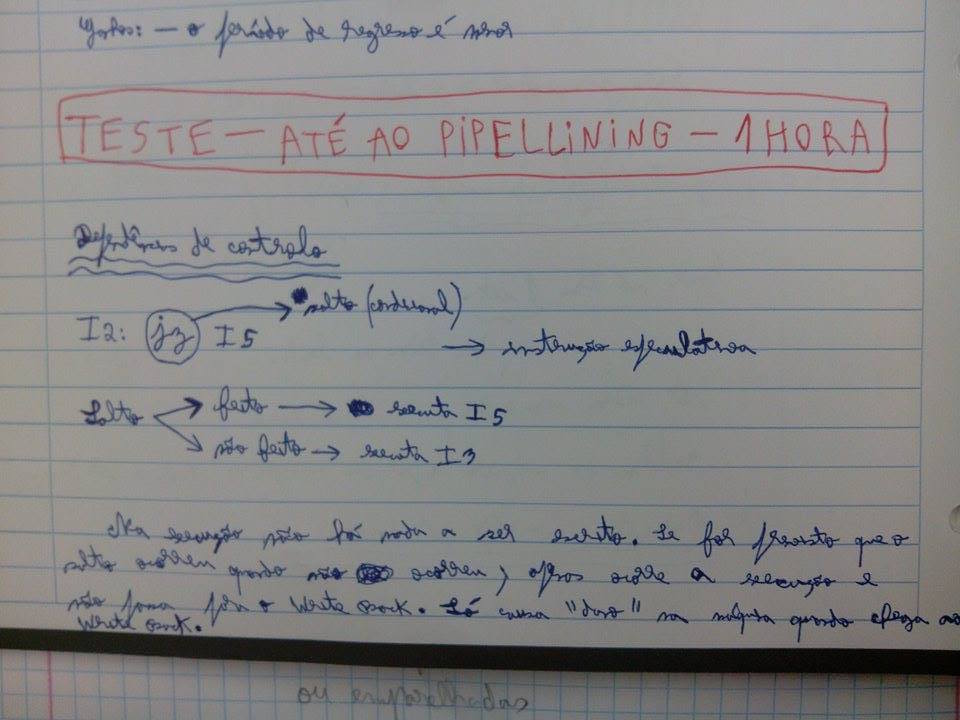 — o período de regresso é
TESTE — ATÉ AO PIPELLINING — 1 HORA
Dependências de controlo
I2: jz I5 → salto (condicional)
→ instrução especulativa
Salto → feito → executa I5
→ não feito → executa I3
Na execução não há nada a ser escrito. Se for previsto que o
salto ocorreu quando não ocorreu, apenas ocorre a execução e
não passa para o Write Back. Só causa "dano" na máquina quando chega ao
Write Back.
ou emparelhadas